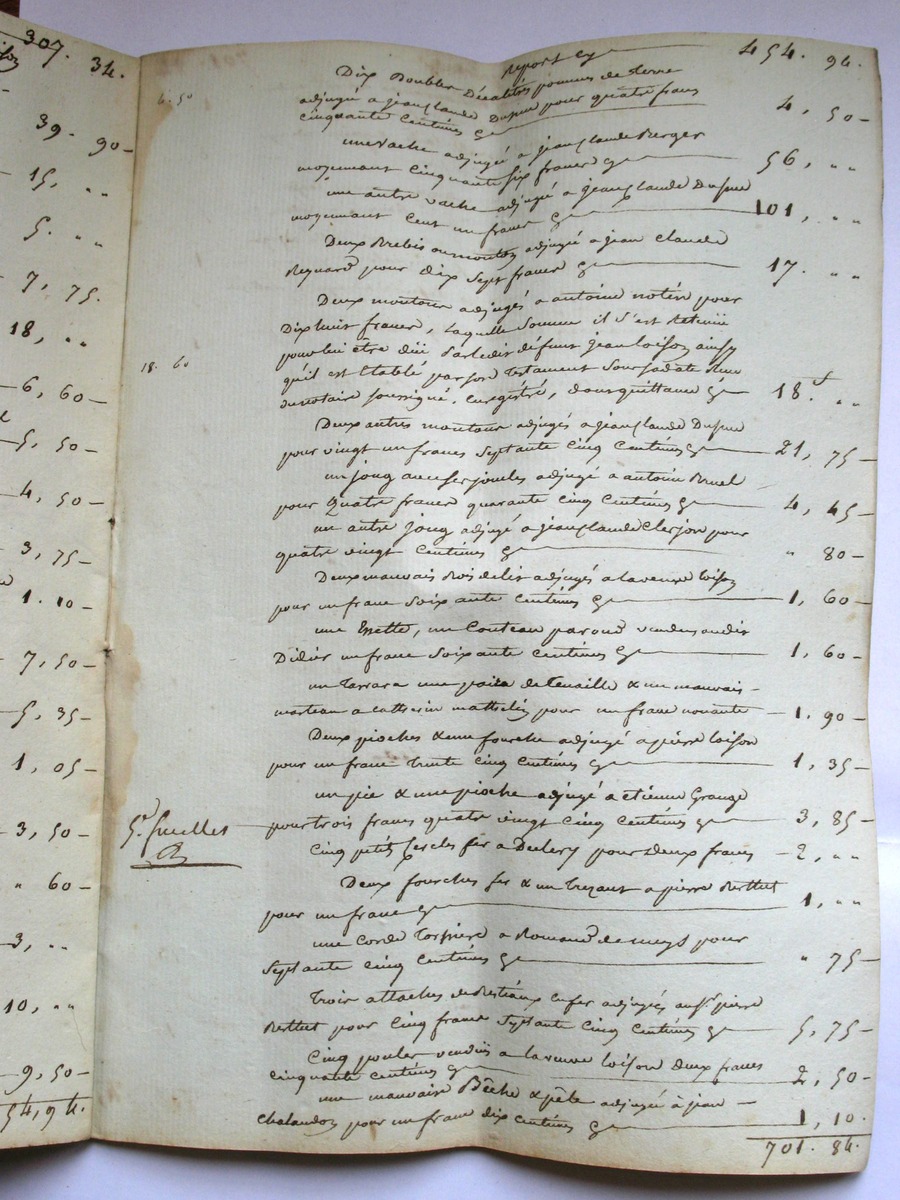 307. 34.
39. 90
15, " "
5. " "
7, 75.
18, " "
6, 60
5, 50
4, 50
3, 75
1. 10
7, 50
5, 35
1, 05
3, 50
" 60
3, " "
10, " "
9, 50
54, 94.
report cy 454. 94.
6. 50
Dix Doubles Décalitres pommes de terre
adjugé a jean Claude Dupui pour quatre francs
cinquante Centimes 4, 50
une vache adjugé a jean Claude Berger
moyennant cinquante six francs 56, " "
une autre vache adjugé a jean Claude Dupui
moyennant Cent un francs 101, " "
Deux Brebis ou moutons adjugé a jean Claude
Reynard pour dix sept francs 17. " "
Deux moutons adjugés a antoine notin pour
Dix huit francs, laquelle Somme il s'est Retenüe
pour lui être düe par ledit défunt jean loison ainsy
18. 60
qu'il est Etablé par son Testament Sous sa date Reçu
du notaire soussigné, enregistré, dont quittance 18.f " "
Deux autres moutons adjugés a jean Claude Dupui
pour vingt un francs Septante Cinq Centimes 21, 75
un joug avec ses joucles adjugé a antoine Bruel
pour Quatre francs quarante Cinq Centimes 4, 45
un autre joug adjugé a jean Claude Clerjon pour
quatre vingt Centimes " 80
Deux mauvais Bois de lit adjugés a la veuve loison
pour un franc Soixante Centimes 1, 60
une Essette, un Couteau paroir vendus audit
Didier un franc Soixante Centimes 1, 60
un Tarrara une paire de Tenaille & un mauvais
marteau a Catherin mathelin pour un franc nonante 1. 90
Deux pioches & une fourche adjugé a pierre loison
pour un franc Trente Cinq Centimes 1, 35
un pic & une pioche adjugé a etienne Grange
5e. feuillet
pour trois francs quatre vingt Cinq Centimes 3, 85
Cinq petits Cercles fer a Decléry pour Deux francs 2, " "
Deux fourches fer & un Trezant a pierre Berthet
pour un franc 1, " "
une Corde Torsiere a Romand de meys pour
Septante Cinq Centimes " 75
Trois attaches de Bestiaux en fer adjugés aud. pierre
Berthet pour Cinq francs Septante Cinq Centimes 5, 75
Cinq poules vendües a la veuve loison Deux francs
Cinquante Centimes 2, 50
une mauvaise Bêche & pêle adjugé à jean
Chalandon pour un franc dix Centimes 1, 10.
701. 84.